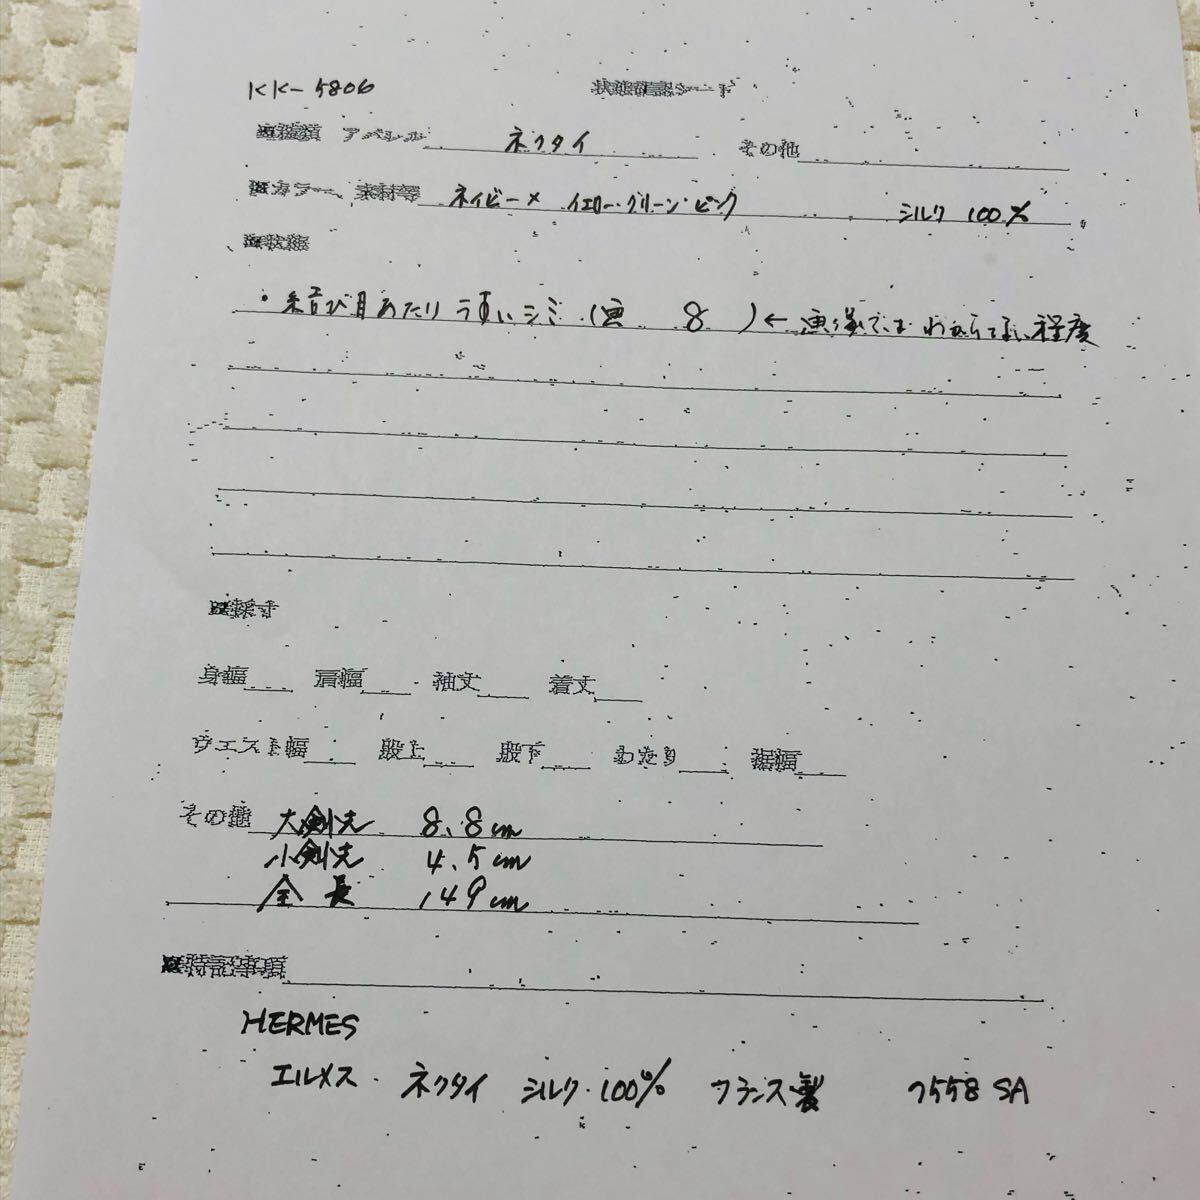 KK-5806 状態確認シート
■種類 アパレル ネクタイ その他
■カラー、素材等 ネイビー× イエロー・グリーン・ピンク シルク 100%
■状態
・結び目あたりうすいシミ(画 8 )← 画像ではわからない程度
■採寸
身幅 肩幅 袖丈 着丈
ウエスト幅 股上 股下 わたり 裾幅
その他 大剣先 8.8cm
小剣先 4.5cm
全長 149cm
■特記事項
HERMES
エルメス・ネクタイ シルク・100% フランス製 7558 SA